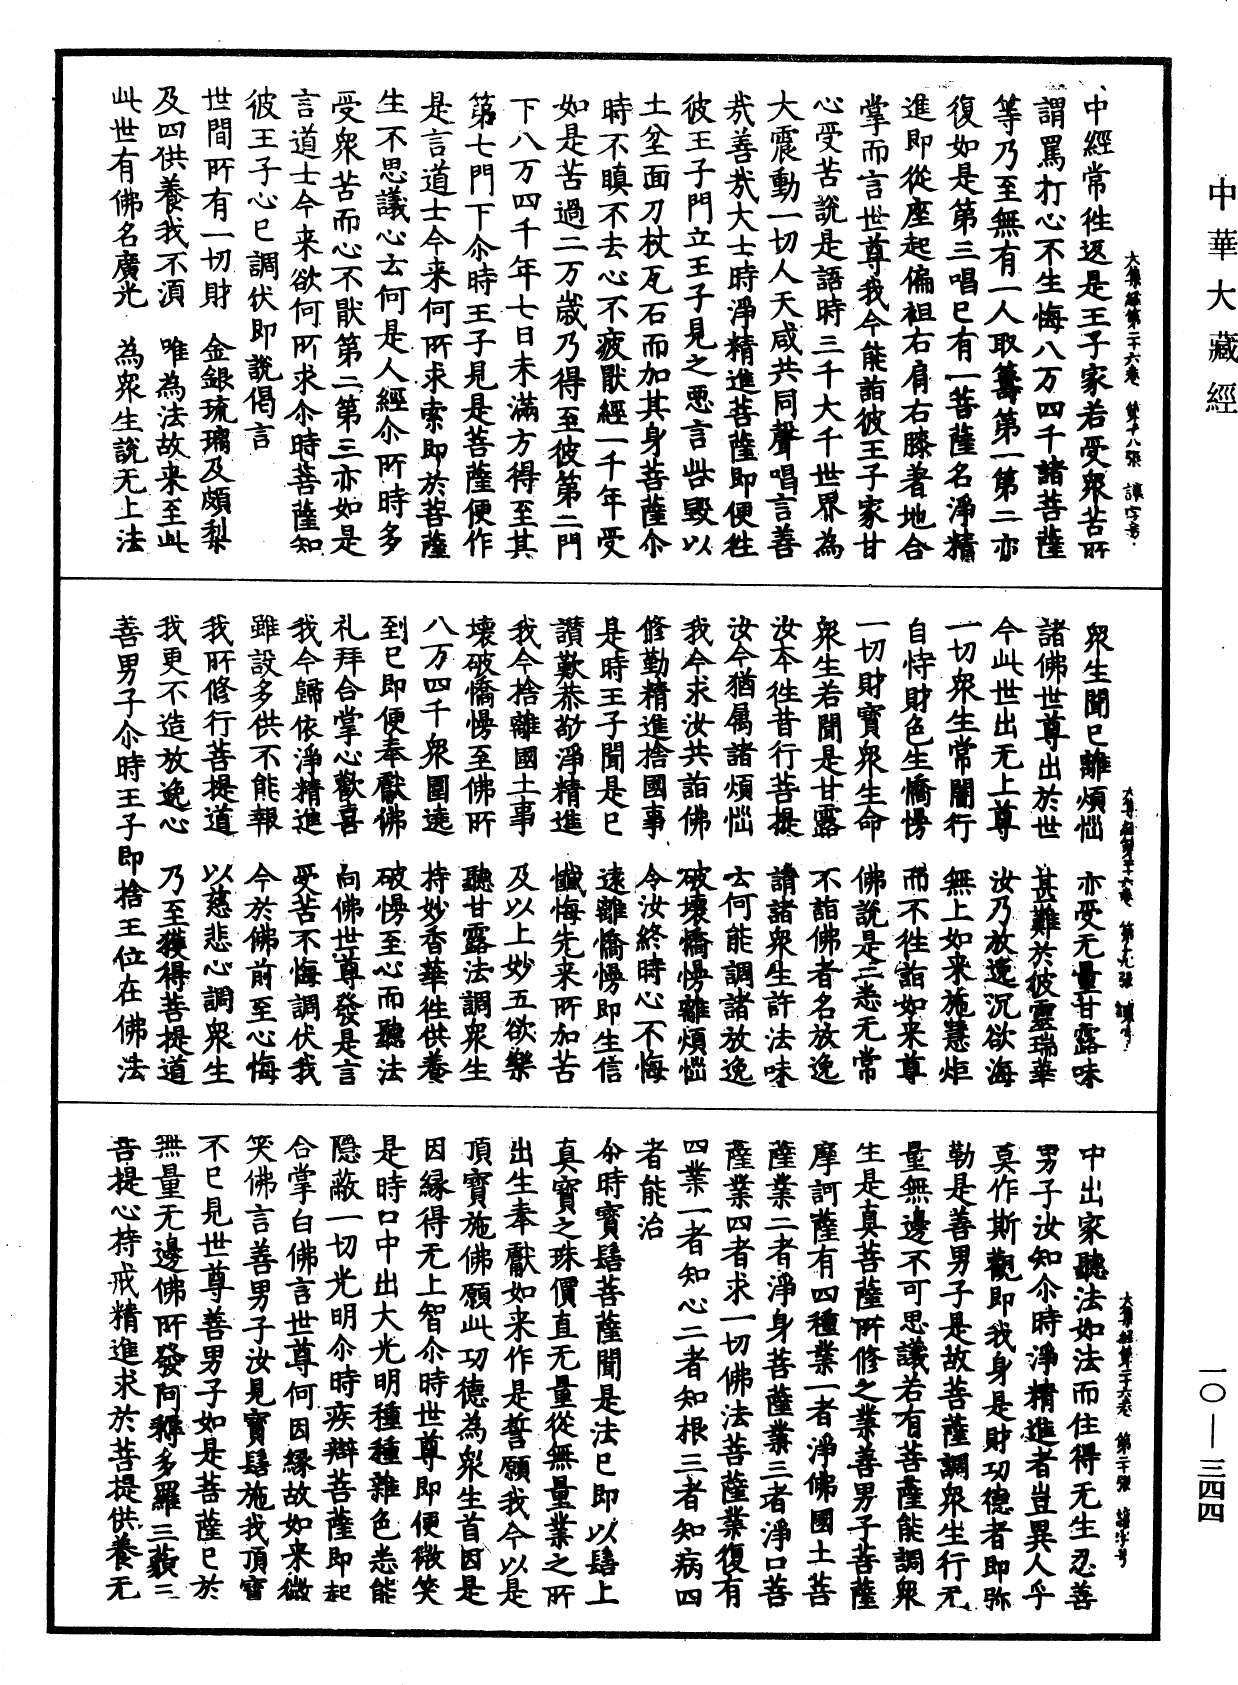 中華大藏經
中經常徃返是王子家若受衆苦所
謂罵打心不生悔八万四千諸菩薩
等乃至無有一人取籌第一第二亦
復如是第三唱已有一菩薩名淨精
進即從座起偏袒右肩右膝著地合
掌而言世尊我今能詣彼王子家甘
心受苦說是語時三千大千世界為
大震動一切人天咸共同聲唱言善
㢤善㢤大士時淨精進菩薩即便徃
彼王子門立王子見之惡言呰毀以
土坌面刀杖瓦石而加其身菩薩尒
時不瞋不去心不疲猒經一千年受
如是苦過二万歲乃得至彼第二門
下八万四千年七日未滿方得至其
第七門下尒時王子見是菩薩便作
是言道士今来何所求索即於菩薩
生不思議心云何是人經尒所時多
受衆苦而心不猒第二第三亦如是
言道士今来欲何所求尒時菩薩知
彼王子心已調伏即說偈言
世間所有一切財　金銀琉璃及頗梨
及四供養我不湏　唯為法故来至此
此世有佛名廣光　為衆生說无上法
大集經第二十六卷　第十八張　讓字号
衆生聞已離煩惱　亦受无量甘露味
諸佛世尊出於世　甚難於彼靈瑞華
今此世出无上尊　汝乃放逸沉欲海
一切衆生常闇行　無上如来施慧炬
自恃財色生憍慢　而不徃詣如来尊
一切財寶衆生命　佛說是二悉无常
衆生若聞是甘露　不詣佛者名放逸
汝本徃昔行菩提　請諸衆生許法味
汝今猶属諸煩惱　云何能調諸放逸
我今求汝共詣佛　破壞憍慢離煩惱
修勤精進捨國事　令汝終時心不悔
是時王子聞是已　遠離憍慢即生信
讃歎恭敬淨精進　懺悔先来所加苦
我今捨離國土事　及以上妙五欲樂
壞破憍慢至佛所　聽甘露法調衆生
八万四千衆圍遶　持妙香華徃供養
到已即便奉獻佛　破慢至心而聽法
礼拜合掌心歡喜　向佛世尊發是言
我今歸依淨精進　受苦不悔調伏我
雖設多供不能報　今於佛前至心悔
我所修行菩提道　以慈悲心調衆生
我更不造放逸心　乃至獲得菩提道
善男子尒時王子即捨王位在佛法
大集經第二十六卷　第十九張　讓字号
中出家聽法如法而住得无生忍善
男子汝知尒時淨精進者豈異人乎
莫作斯觀即我身是財功德者即弥
勒是善男子是故菩薩調衆生行无
量無邊不可思議若有菩薩能調衆
生是真菩薩所修之業善男子菩薩
摩訶薩有四種業一者淨佛國土菩
薩業二者淨身菩薩業三者淨口菩
薩業四者求一切佛法菩薩業復有
四業一者知心二者知根三者知病四
者能治
尒時寶髻菩薩聞是法已即以髻上
真寶之珠價直无量從無量業之所
出生奉獻如来作是誓願我今以是
頂寶施佛願此功德為衆生首因是
因縁得无上智尒時世尊即便微笑
是時口中出大光明種種雜色悉能
隱蔽一切光明尒時疾辯菩薩即起
合掌白佛言世尊何因縁故如来微
笑佛言善男子汝見寶髻施我頂寶
不已見世尊善男子如是菩薩已於
無量无邊佛所發阿耨多羅三藐三
菩提心持戒精進求於菩提供養无
大集經第二十六卷　第二十張　讓字号
一〇—三四四